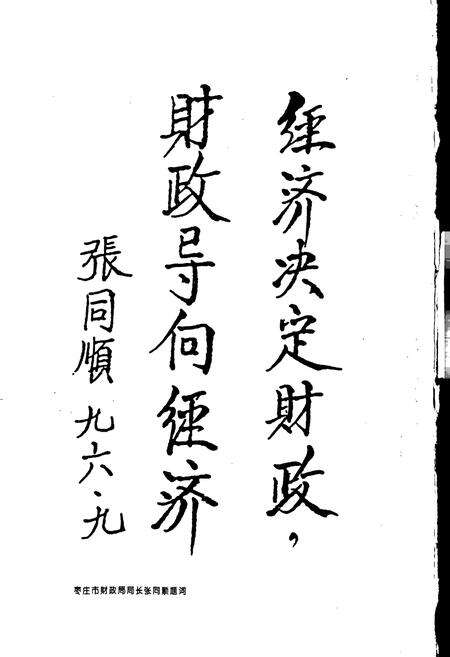 經济决定財政，
財政导向經济
張同順 九六.九
枣庄市财政局局长张同顺题词